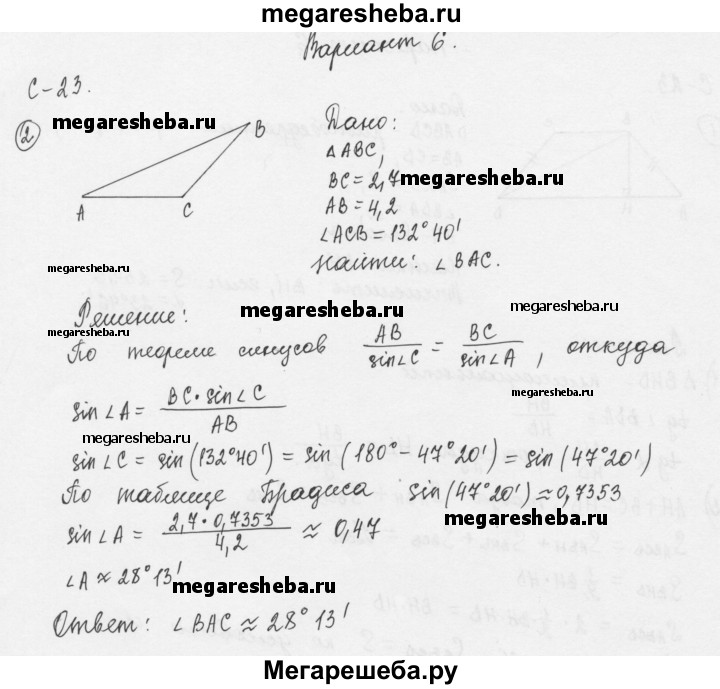 megaresheba.ru
Вариант 6.
С-23.
② megaresheba.ru
B
A
C
Дано:
△ABC,
BC = 2,7
megaresheba.ru
AB = 4,2
∠ACB = 132°40'
Найти: ∠BAC.
megaresheba.ru
Решение:
megaresheba.ru
megaresheba.ru
megaresheba.ru
По теореме синусов AB/sin∠C = BC/sin∠A, откуда
sin∠A = BC·sin∠C/AB
megaresheba.ru
sin∠C = sin(132°40') = sin(180° - 47°20') = sin(47°20')
По таблице Брадиса sin(47°20') ≈ 0,7353
megaresheba.ru
sin∠A = 2,7·0,7353/4,2 ≈ 0,47
∠A ≈ 28°13'
megaresheba.ru
Ответ: ∠BAC ≈ 28°13'
Мегарешеба.ру